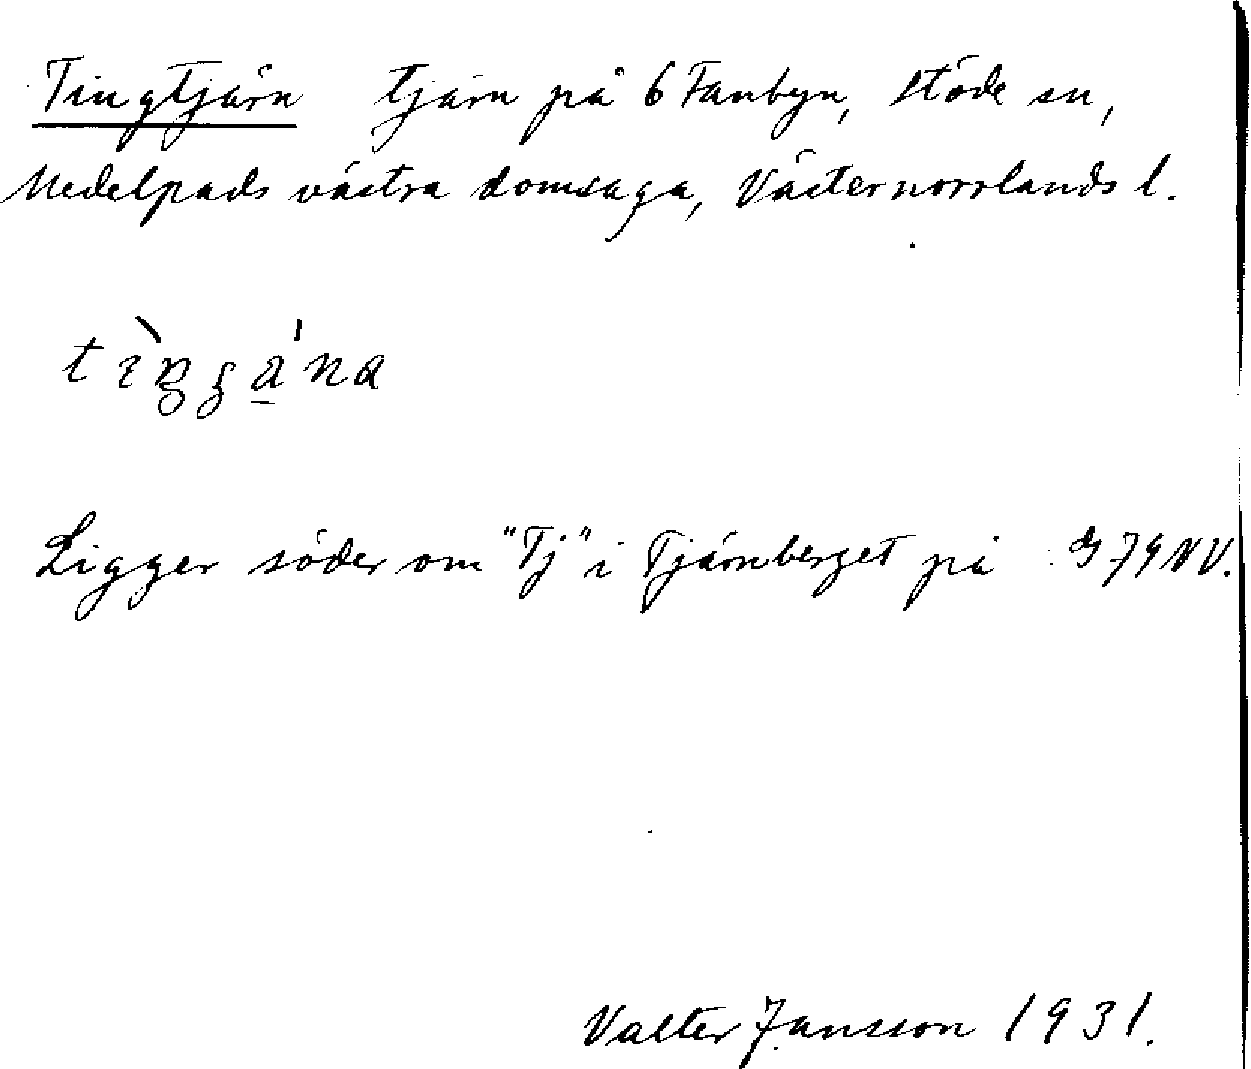 Tingtjärn tjärn på 6 Fanbyn, Stöde sn,
Medelpads västra domsaga, Västernorrlands l.
Ligger söder om "Tj" i Tjärnberget på G 79 NV.
Valter Jansson 1931.